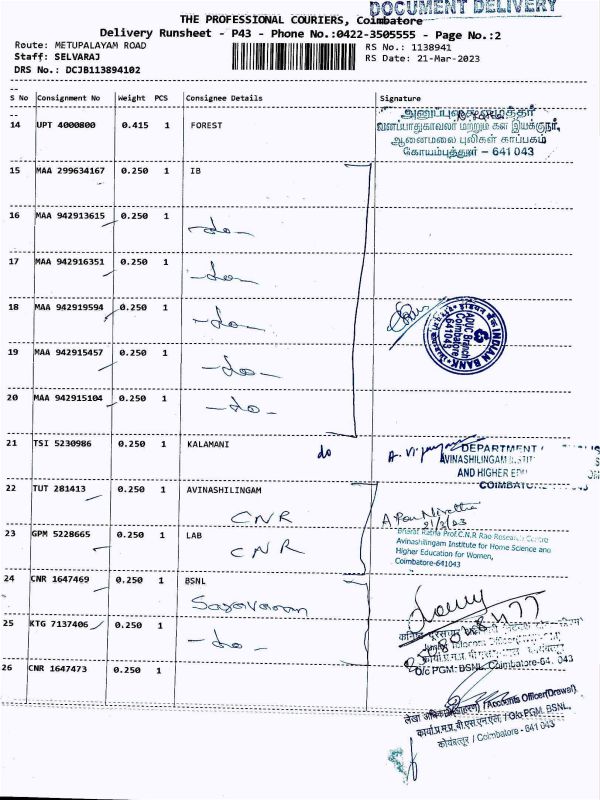 DOCUMENT DELIVERY
THE PROFESSIONAL COURIERS, Coimbatore
Delivery Runsheet - P43 - Phone No.:0422-3505555 - Page No.:2
Route: METUPALAYAM ROAD
Staff: SELVARAJ
DRS No.: DCJB113894102
RS No.: 1138941
RS Date: 21-Mar-2023
S No Consignment No Weight PCS Consignee Details Signature
14 UPT 4000800 0.415 1 FOREST
வனப்பாதுகாவலர் மற்றும் கள இயக்குநர்,
ஆனைமலை புலிகள் காப்பகம்
கோயம்புத்தூர் - 641 043
15 MAA 299634167 0.250 1 IB
16 MAA 942913615 0.250 1
-do-
17 MAA 942916351 0.250 1
-do-
18 MAA 942919594 0.250 1
-do-
INDIAN BANK
इंडियन बैंक
ADVC Branch
Coimbatore
641043
19 MAA 942915457 0.250 1
-do-
20 MAA 942915104 0.250 1
-do-
21 TSI 5230986 0.250 1 KALAMANI do
DEPARTMENT
AVINASHILINGAM
AND HIGHER
COIMBATORE
22 TUT 281413 0.250 1 AVINASHILINGAM
CNR
23 GPM 5228665 0.250 1 LAB
CNR
Bharat Ratna Prof.C.N.R Rao Research Centre
Avinashilingam Institute for Home Science and
Higher Education for Women,
Coimbatore-641043
24 CNR 1647469 0.250 1 BSNL
25 KTG 7137406 0.250 1
-do-
O/o PGM. BSNL, Coimbatore-64. 043
26 CNR 1647473 0.250 1
/Accounts Officer(Drawal)
/ O/o PGM. BSNL,
कोयंबत्तूर / Coimbatore - 641 043